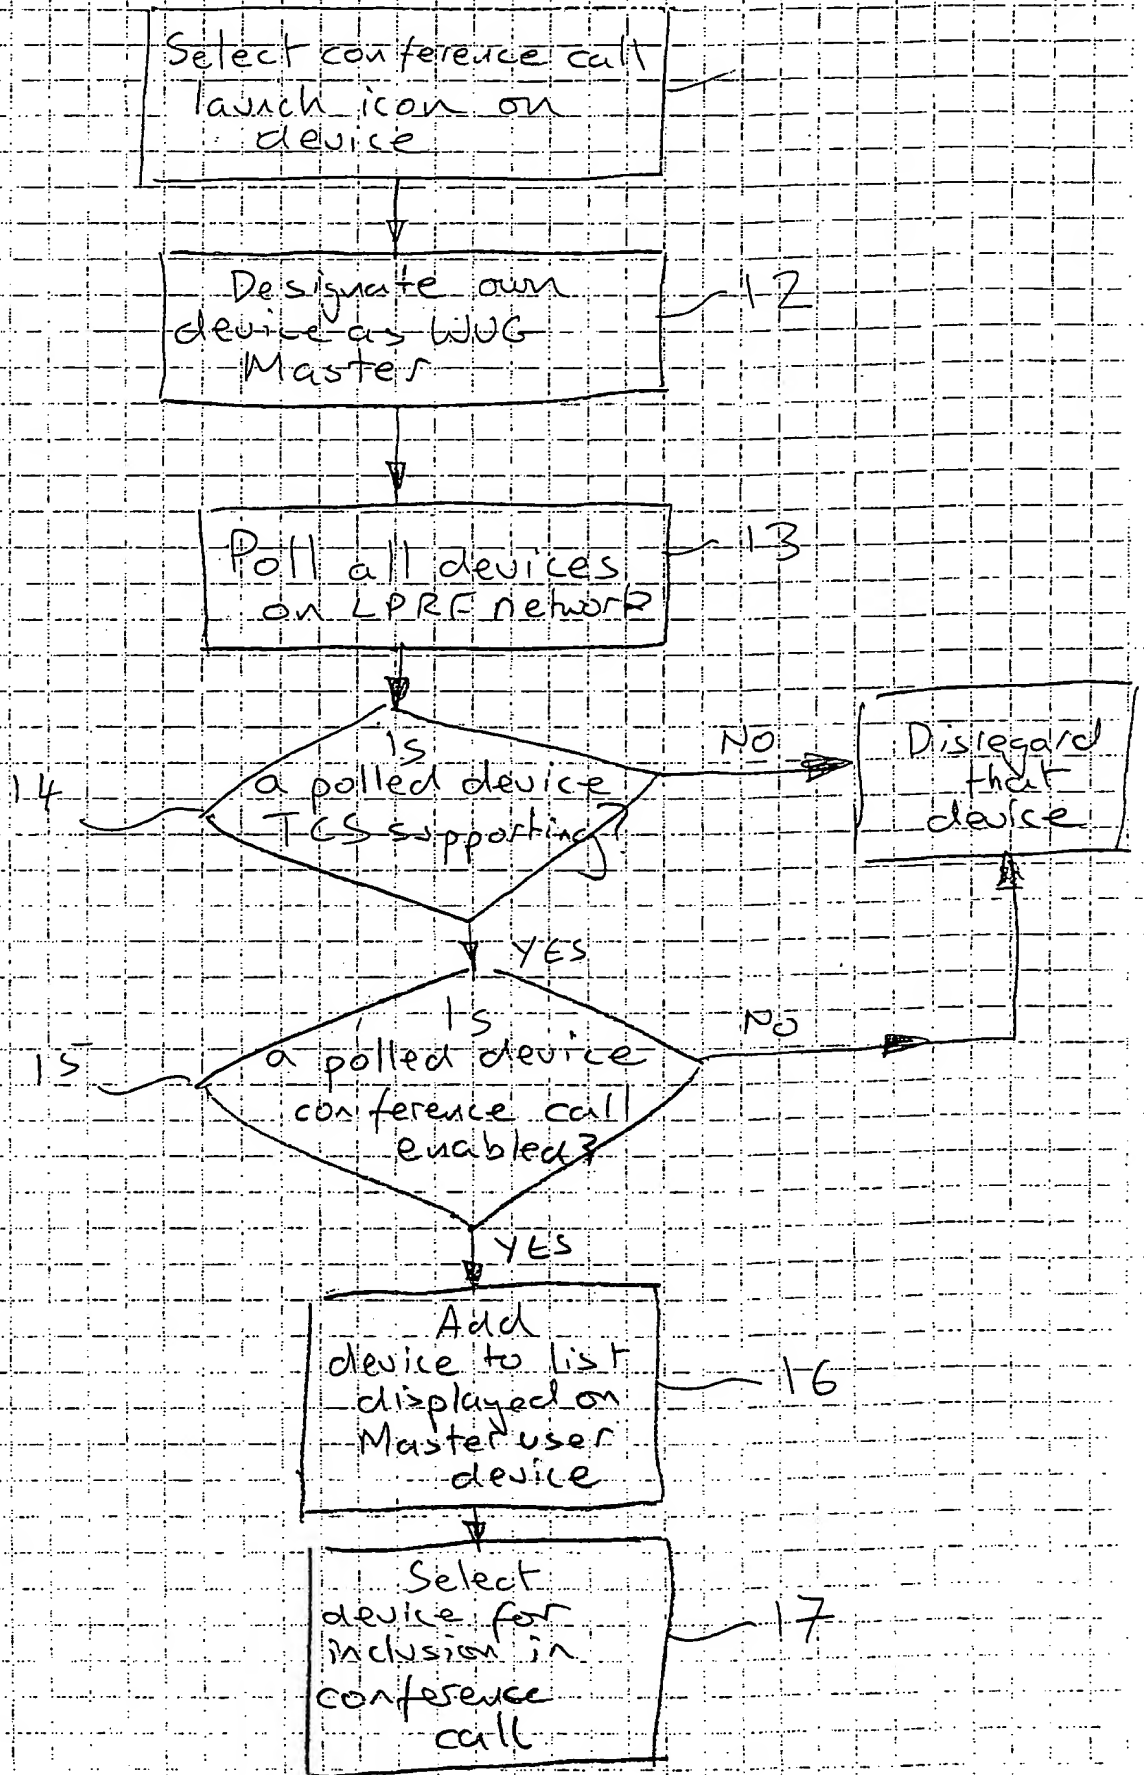 Select conference call
launch icon on
device
Designate own
device as WUG
Master
12
Poll all devices
on LPRF network
13
is
a polled device
TCS supporting?
14
NO
Disregard
that
device
YES
Is
a polled device
conference call
enabled?
15
NO
YES
Add
device to list
displayed on
Master user
device
16
Select
device for
inclusion in
conference
call
17